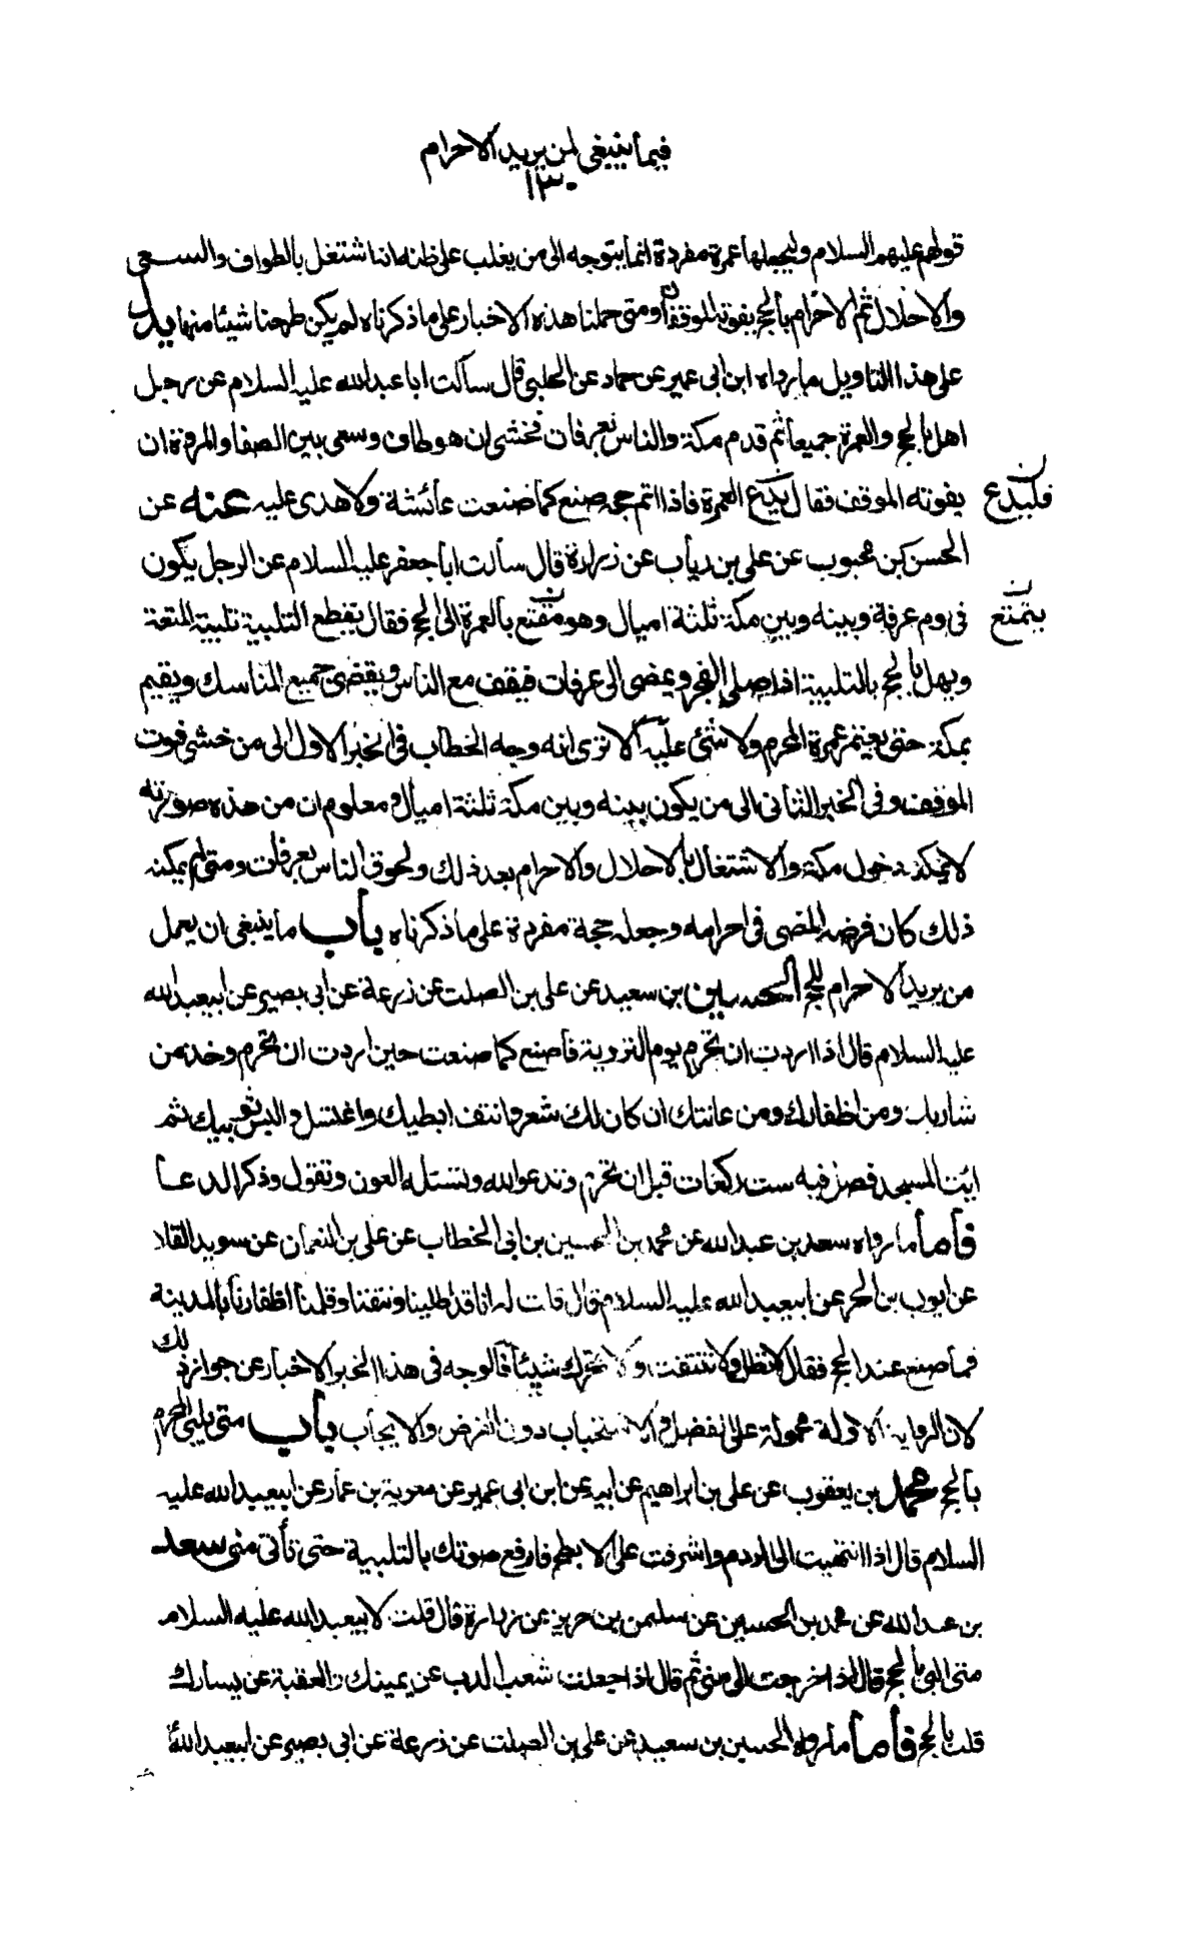 فيما ينبغي لمن يريد الاحرام
١٣٠
قولهم عليهم السلام وليجعلها عمرة مفردة انما يتوجه الى من يغلب على ظنه انه ان اشتغل بالطواف والسعي
والاحلال ثم الاحرام بالحج يفوته الموقفان ومتى حملنا هذه الاخبار على ما ذكرناه لم يكن طرحنا شيئا منها يدل
على هذا التاويل ما رواه ابن ابي عمير عن حماد عن الحلبي قال سألت ابا عبدالله عليه السلام عن رجل
اهل بالحج والعمرة جميعا ثم قدم مكة والناس بعرفات فخشى ان هو طاف وسعى بين الصفا والمروة ان
يفوته الموقف فقال يدع العمرة فاذا اتم حجه صنع كما صنعت عائشة ولا هدى عليه عنه عن
فليدع
الحسن بن محبوب عن علي بن رياب عن زرارة قال سألت ابا جعفر عليه السلام عن الرجل يكون
في يوم عرفة وبينه وبين مكة ثلثة اميال وهو متمتع بالعمرة الى الحج فقال يقطع التلبية تلبية المتعة
يتمتع
ويهل بالحج بالتلبية اذا صلى الفجر ويمضى الى عرفات فيقف مع الناس ويقضى جميع المناسك ويقيم
بمكة حتى يعتمر عمرة المحرم ولا شئ عليه الا ترى انه وجه الخطاب في الخبر الاول الى من خشى فوت
الموقف وفي الخبر الثاني الى من يكون بينه وبين مكة ثلثة اميال ومعلوم ان من هذه صورته
لا يمكنه دخول مكة والاشتغال بالاحلال والاحرام بعد ذلك ولحوق الناس بعرفات ومتى لم يمكنه
ذلك كان فرضه المضى في احرامه وجعله حجة مفردة على ما ذكرناه باب ما ينبغي ان يعمل
من يريد الاحرام للحج الحسين بن سعيد عن علي بن الصلت عن زرعة عن ابي بصير عن ابيعبدالله
عليه السلام قال اذا اردت ان تحرم يوم التروية فاصنع كما صنعت حين اردت ان تحرم وخذ من
شاربك ومن اظفارك ومن عانتك ان كان لك شعر وانتف ابطيك واغتسل والبس ثوبيك ثم
ايت المسجد فصل فيه ست ركعات قبل ان تحرم وتدعو الله وتسئله العون وتقول وذكر الدعا
فأما ما رواه سعد بن عبدالله عن محمد بن الحسين بن ابي الخطاب عن علي بن النعمان عن سويد القلا
عن ايوب بن الحر عن ابيعبدالله عليه السلام قال قلت له انا قد اطلينا ونتفنا وقلمنا اظفارنا بالمدينة
فما صنع عند الحج فقال لا تطل ولا تنتف ولا تحرك شيئا فالوجه في هذا الخبر الاخبار عن جواز ذلك
لان الرواية الاولة محمولة على الفضل والاستحباب دون الفرض والايجاب باب متى يلبي المحرم
بالحج محمد بن يعقوب عن علي بن ابراهيم عن ابيه عن ابن ابي عمير عن معوية بن عمار عن ابيعبدالله عليه
السلام قال اذا انتهيت الى الردم واشرفت على الابطح فارفع صوتك بالتلبية حتى تأتي منى سعد
بن عبدالله عن محمد بن الحسين عن سليمن بن حريز عن زرارة قال قلت لابيعبدالله عليه السلام
متى البي بالحج قال اذا خرجت الى منى ثم قال اذا جعلت شعب الدب عن يمينك والعقبة عن يسارك
قلت بالحج فأما ما رواه الحسين بن سعيد عن علي بن الصلت عن زرعة عن ابي بصير عن ابيعبدالله